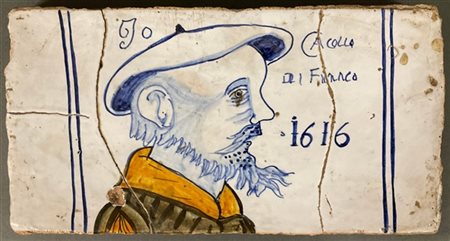 Jo
Cacolla
Di Franco
1616